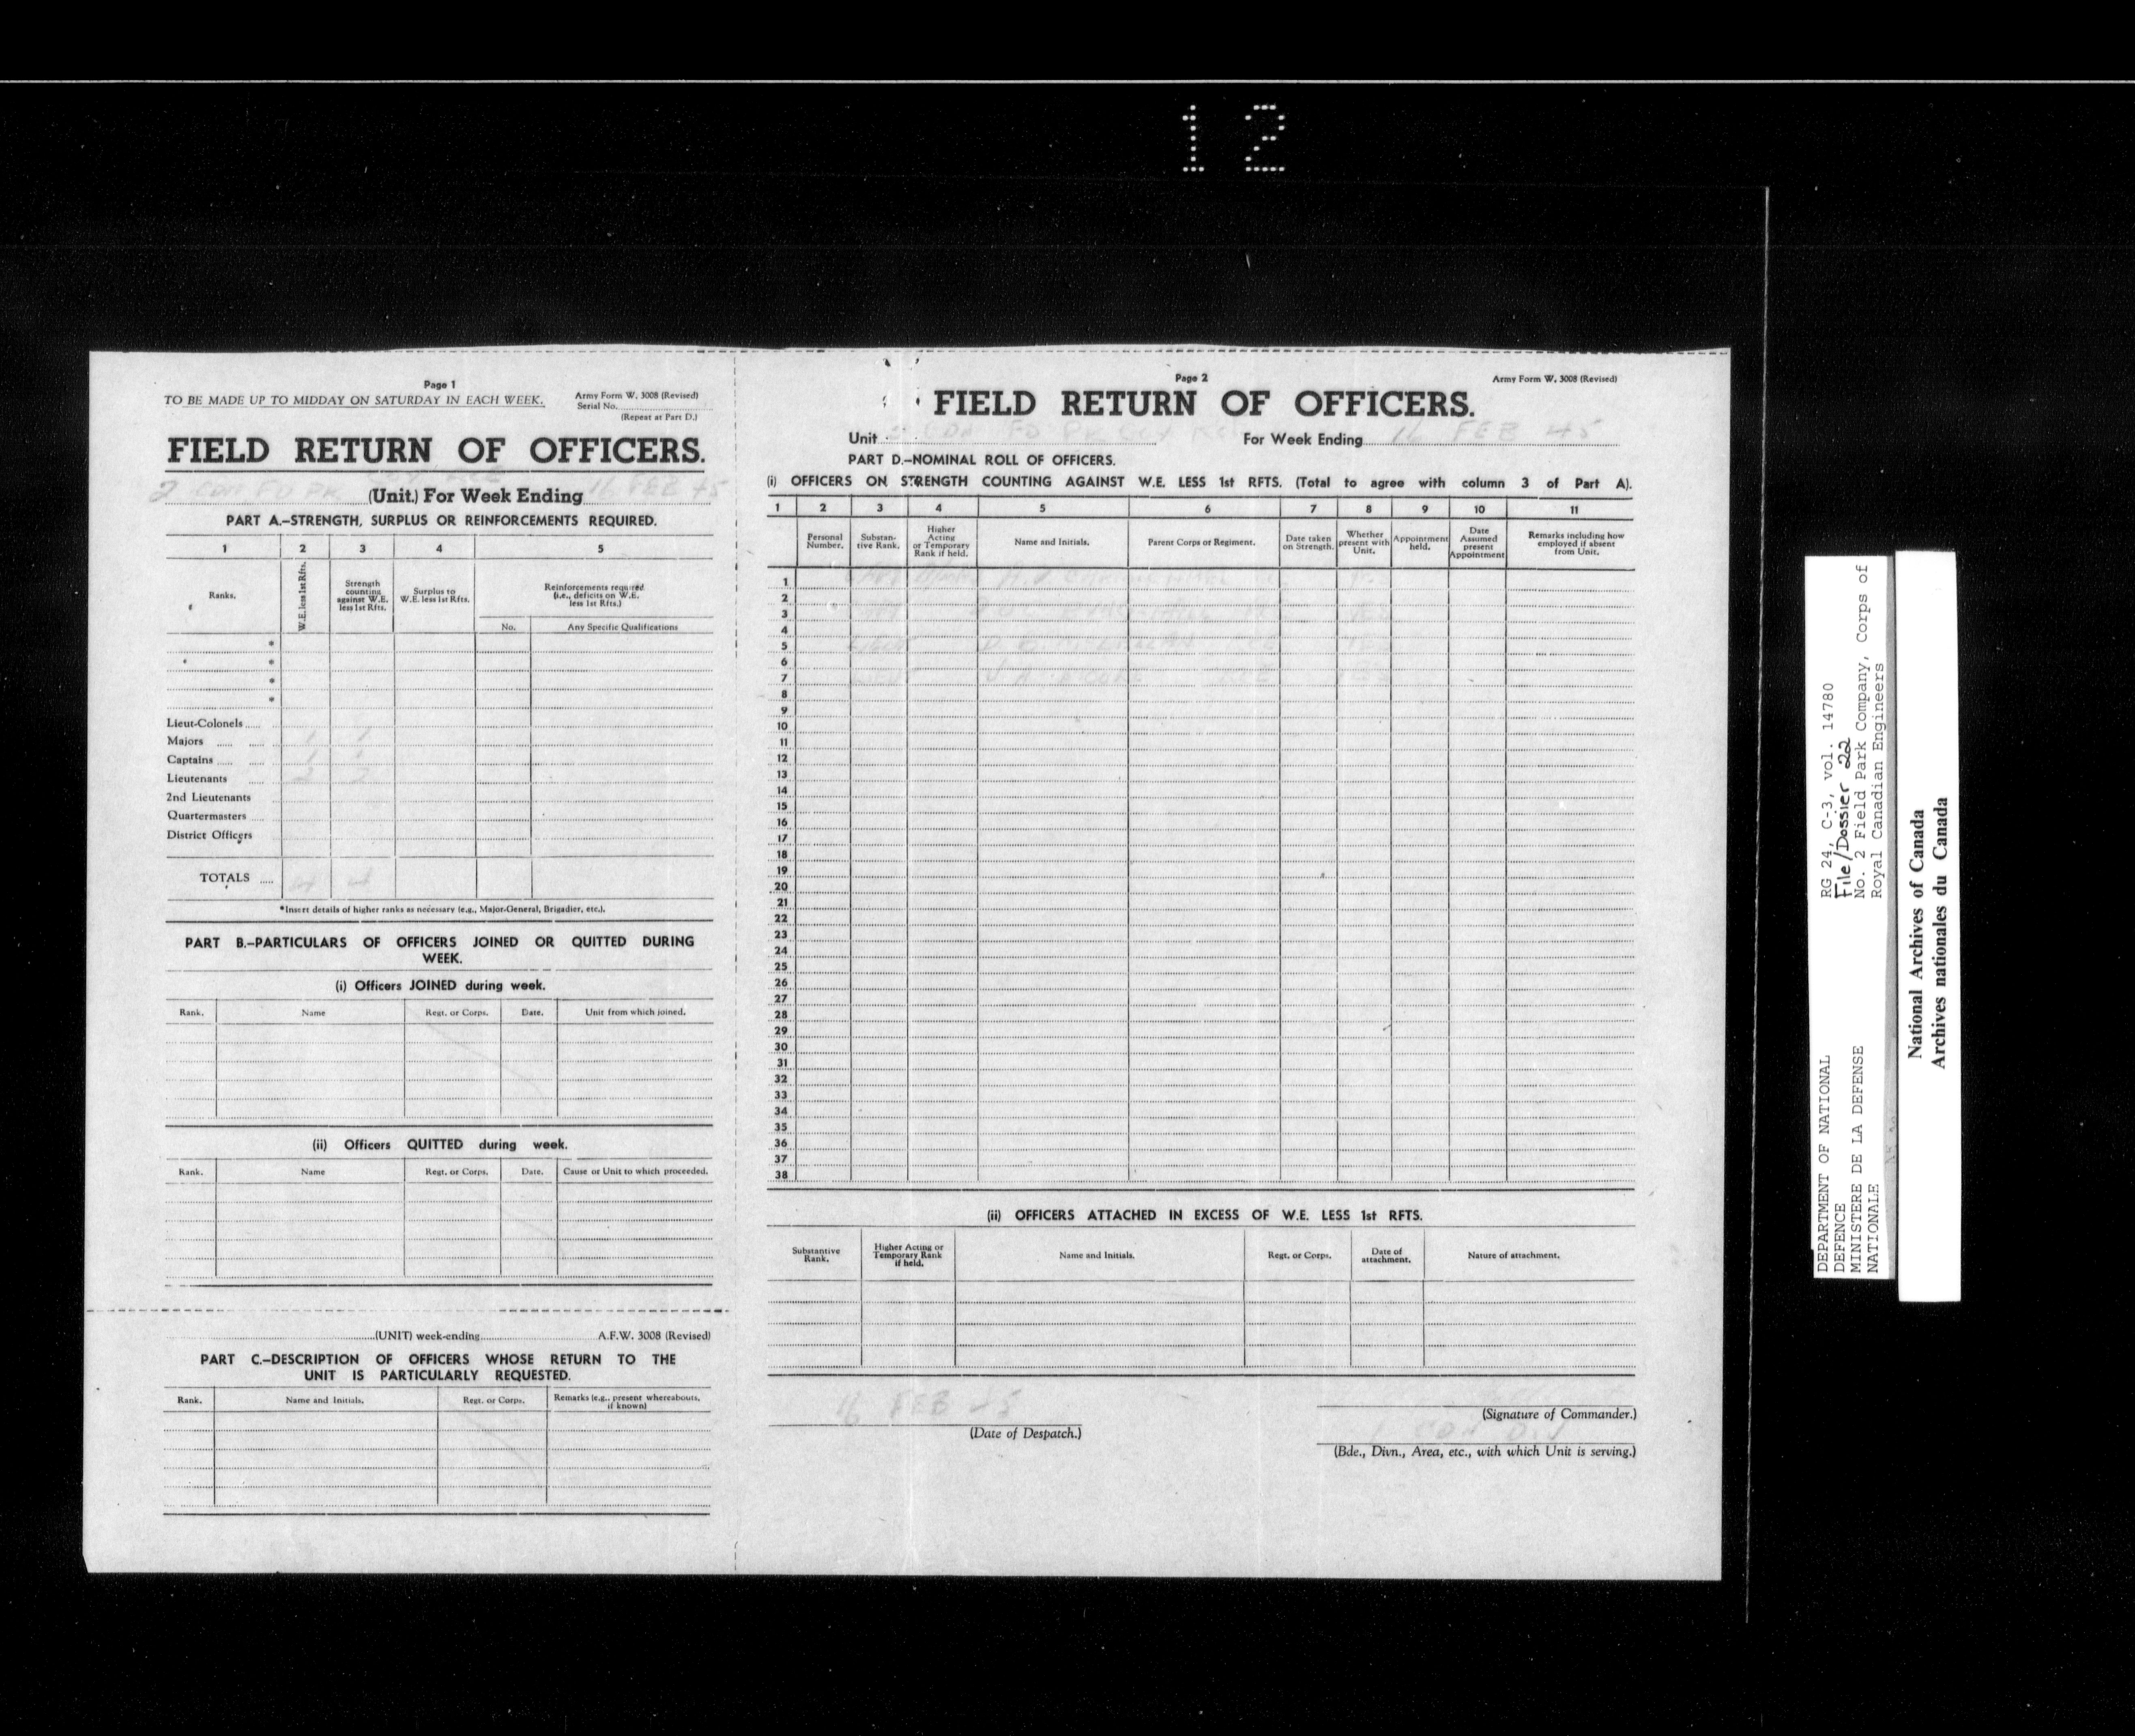 12
Page 1
TO BE MADE UP TO MIDDAY ON SATURDAY IN EACH WEEK.
Army Form W. 3008 (Revised)
Serial No.
(Repeat at Part D.)
FIELD RETURN OF OFFICERS.
2 CDN FD PK (Unit.) For Week Ending 16 FEB 45
PART A.-STRENGTH, SURPLUS OR REINFORCEMENTS REQUIRED.
1 2 3 4 5
Ranks.
W.E. less 1st Rfts.
Strength counting against W.E. less 1st Rfts.
Surplus to W.E. less 1st Rfts.
Reinforcements required (i.e., deficits on W.E. less 1st Rfts.)
No. Any Specific Qualifications
*
*
*
*
Lieut-Colonels
Majors 1 1
Captains 1 1
Lieutenants 2 2
2nd Lieutenants
Quartermasters
District Officers
TOTALS 4 4
*Insert details of higher ranks as necessary (e.g., Major-General, Brigadier, etc.).
PART B.-PARTICULARS OF OFFICERS JOINED OR QUITTED DURING
WEEK.
(i) Officers JOINED during week.
Rank. Name Regt. or Corps. Date. Unit from which joined.
(ii) Officers QUITTED during week.
Rank. Name Regt. or Corps. Date. Cause or Unit to which proceeded.
(UNIT) week-ending A.F.W. 3008 (Revised)
PART C.-DESCRIPTION OF OFFICERS WHOSE RETURN TO THE
UNIT IS PARTICULARLY REQUESTED.
Rank. Name and Initials. Regt. or Corps. Remarks (e.g., present whereabouts, if known)
Page 2
Army Form W. 3008 (Revised)
FIELD RETURN OF OFFICERS.
Unit 2 CDN FD PK For Week Ending 16 FEB 45
PART D.-NOMINAL ROLL OF OFFICERS.
(i) OFFICERS ON STRENGTH COUNTING AGAINST W.E. LESS 1st RFTS. (Total to agree with column 3 of Part A).
1 2 3 4 5 6 7 8 9 10 11
Personal Number.
Substantive Rank.
Higher Acting or Temporary Rank if held.
Name and Initials.
Parent Corps or Regiment.
Date taken on Strength.
Whether present with Unit.
Appointment held.
Date Assumed present Appointment
Remarks including how employed if absent from Unit.
1
2
3
4
5
6
7
8
9
10
11
12
13
14
15
16
17
18
19
20
21
22
23
24
25
26
27
28
29
30
31
32
33
34
35
36
37
38
(ii) OFFICERS ATTACHED IN EXCESS OF W.E. LESS 1st RFTS.
Substantive Rank. Higher Acting or Temporary Rank if held. Name and Initials. Regt. or Corps. Date of attachment. Nature of attachment.
16 FEB 45
(Date of Despatch.)
(Signature of Commander.)
1 CDN DIV
(Bde., Divn., Area, etc., with which Unit is serving.)
DEPARTMENT OF NATIONAL
DEFENCE
MINISTERE DE LA DEFENSE
NATIONALE
RG 24, C-3, vol. 14780
File/Dossier 22
No. 2 Field Park Company, Corps of
Royal Canadian Engineers
National Archives of Canada
Archives nationales du Canada